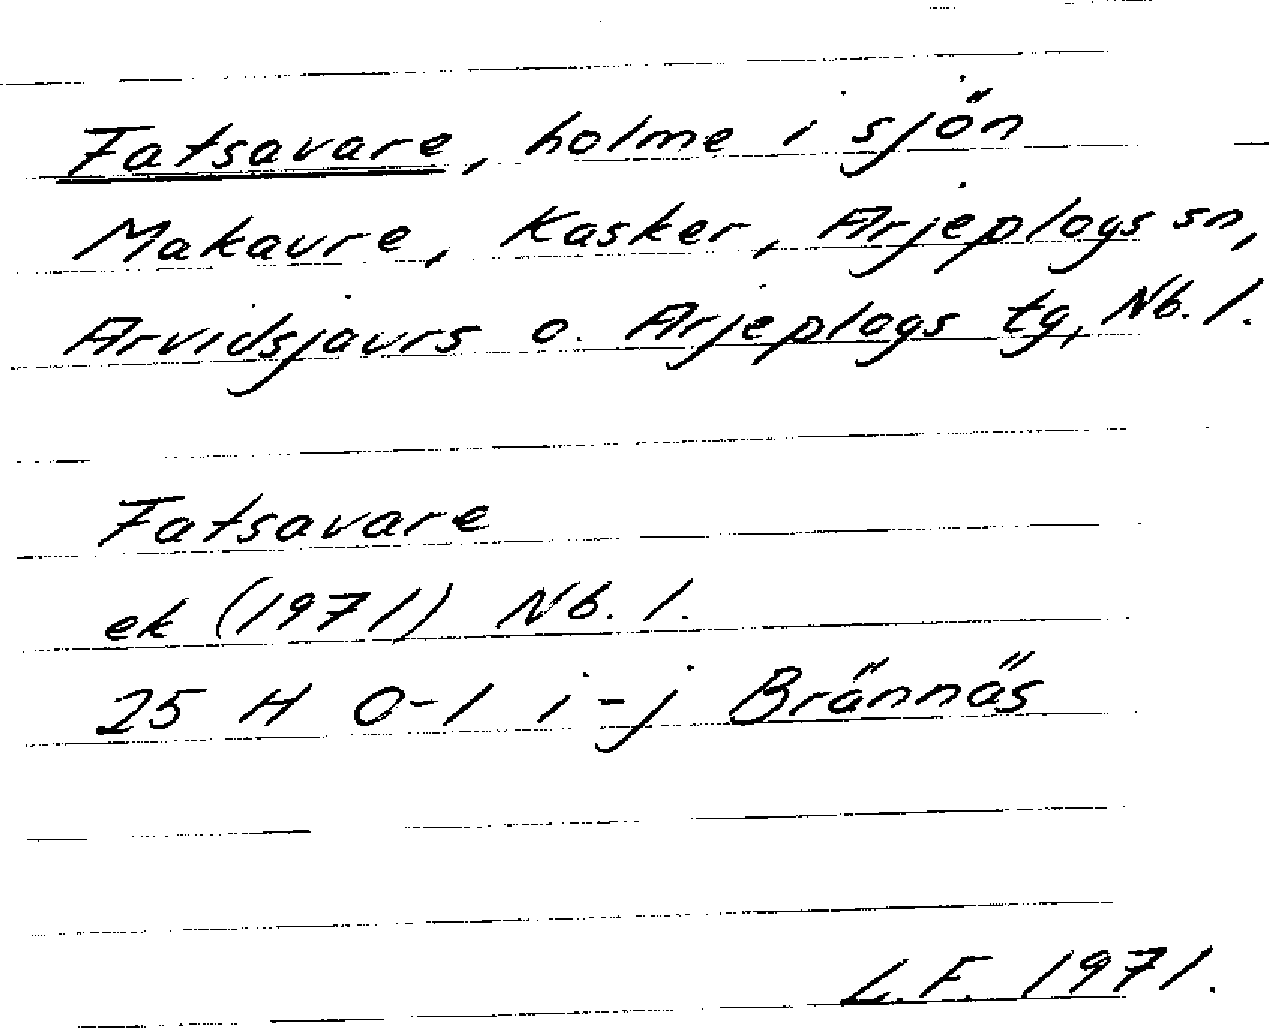 Fatsavare, holme i sjön
Makaure, Kasker, Arjeplogs sn,
Arvidsjaurs o. Arjeplogs tg, Nb. l.
Fatsavare
ek (1971) Nb. l.
25 H 0-1 i-j Brännäs
L.F. 1971.